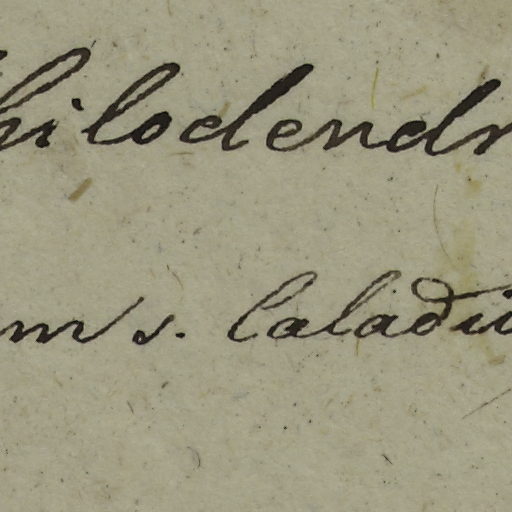 hilodendr
m s. Caladiu